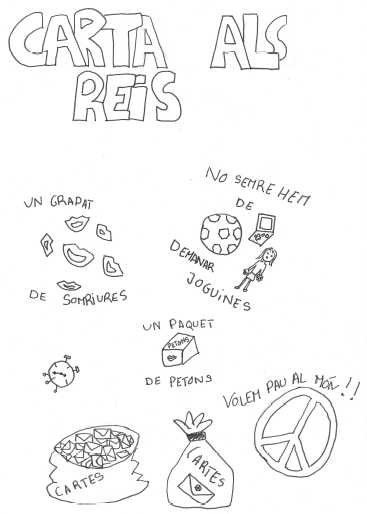 CARTA ALS
REIS
UN GRAPAT
DE SOMRIURES
NO SEMRE HEM
DE
DEMANAR
JOGUINES
UN PAQUET
PETONS
DE PETONS
VOLEM PAU AL MÓN!!
CARTES
CARTES